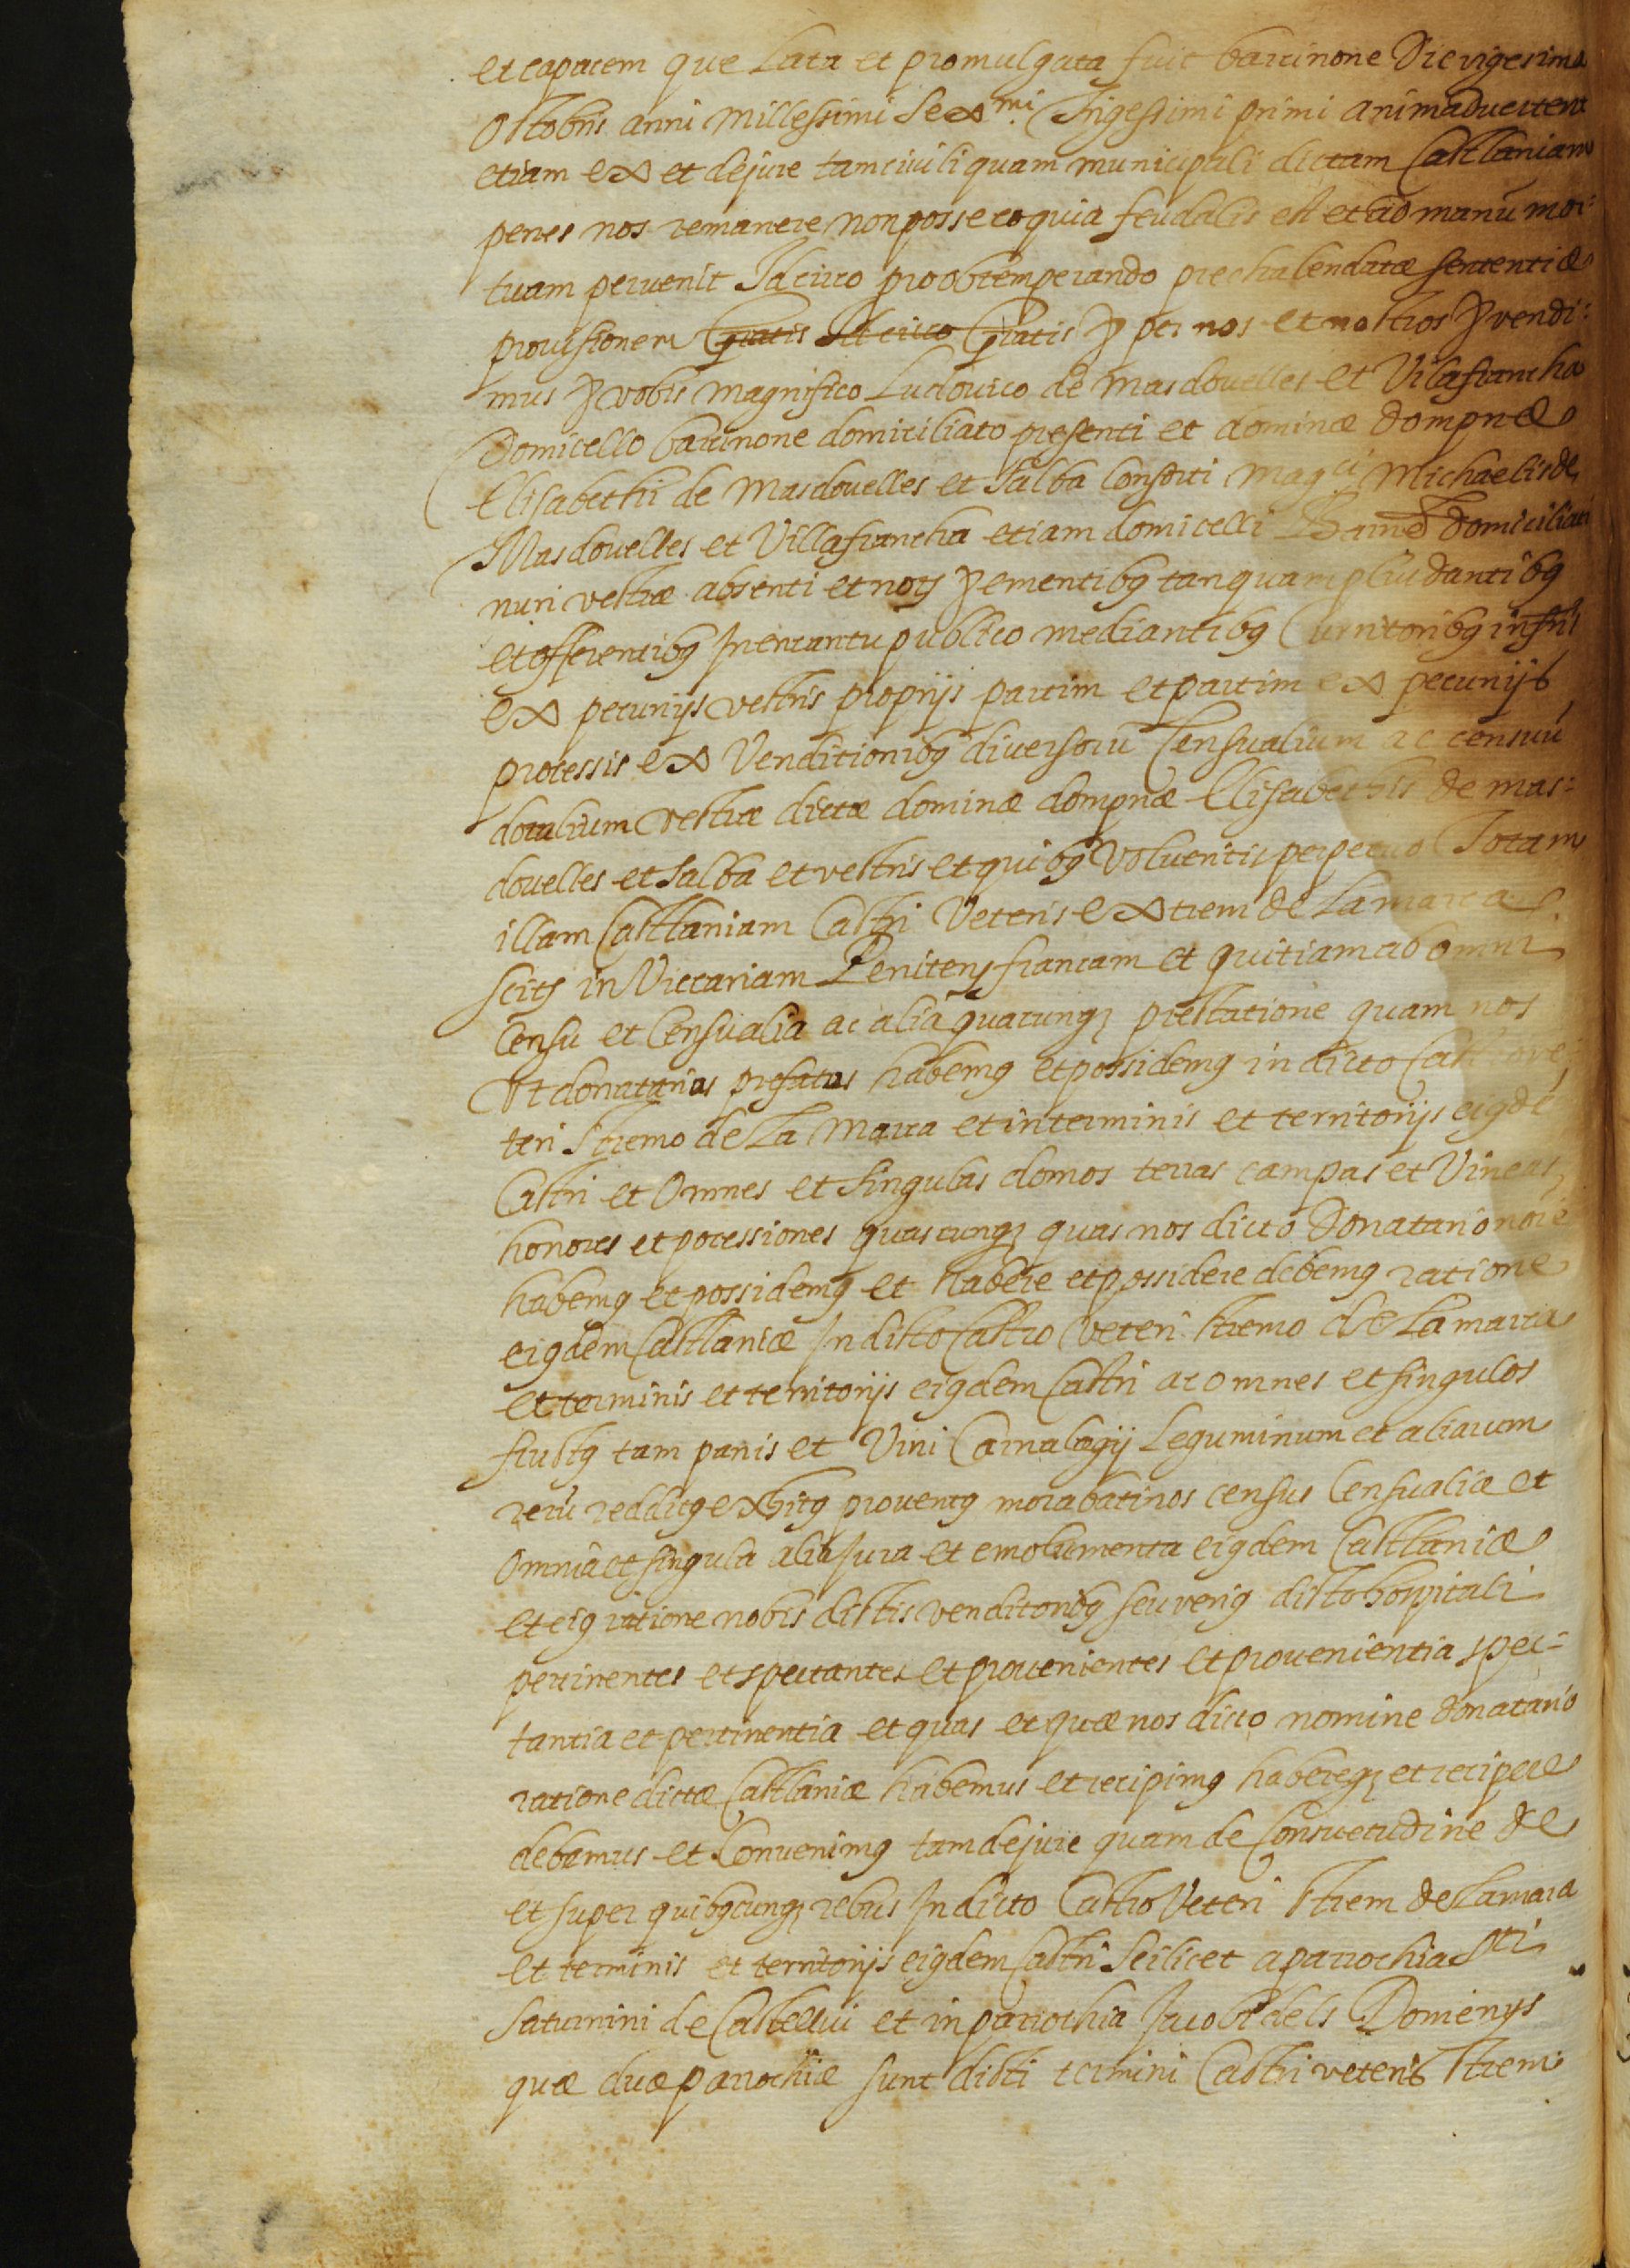 et capacem que Lata et promulgata fuit barcinone Die vigesima
Octobris anni Millessimi Sexmi. Trigessimi primi animadvertent
etiam ex et de jure tam civili quam municipali dictam Castlaniam
penes nos remanere non posse eo quia feudalis est et ad manū mor:
tuam pervenit Idcirco pro obtemperando prechalendatæ sententiæ
provisionem Gratis Idcirco Gratis per nos et nostros vendi:
mus vobis Magnifico Ludovico de Masdovelles et Vilafrancha
Domicello barcinone domiciliato presenti et dominæ dompnæ
Elisabethi de Masdovelles et Salba Consorti Magci Michaelis de
Masdovelles et Villafrancha etiam domicelli Barnē domiciliati
nuri vestræ absenti et ementibꝯ tanquam plus dantibꝯ
et offerentibꝯ In encantu publico mediantibꝯ Curritoribꝯ infris
ex pecunijs vestris proprijs partim et partim ex pecunijs
processis ex Venditionibꝯ diversorū Censualium ac censuū
dotalium vestræ dictæ dominæ dompnæ Elisabethis de mas:
dovelles et Salba et vestris et quibꝯ Volueritis perpetuo Totam
illam Castlaniam Castri Veteris extrem de La marca
scits in Viccariam Penitens francam et quitiam ab omni
Censu et Censualia ac alia quacunqꝫ prestatione quam nos
Ut donatarias prefatus habemꝯ et possidemꝯ in dicto Castro ve
teri Stremo de La Marca et in terminis et territorijs eiꝯdē
Castri et Omnes et Singulas domos terras campas et Vineas
honores et pocessiones quascunqꝫ quas nos dicto Donatario noīe
habemꝯ et possidemꝯ et habere et possidere debemꝯ ratione
eiꝯdem Castlaniæ In dicto Castro Veteri Stremo de La marca
et terminis et territorijs eiꝯdem Castri ac omnes et singulos
fructꝯ tam panis et Vini Carnalagij Leguminum et aliarum
rerū redditꝯ exhitꝯ proventꝯ morabatinos census Censualiæ et
Omnia et singula alia Jura et emolumenta eiꝯdem Castlaniæ
et eiꝯ ratione nobis dictis venditoribꝯ seu veriꝯ dicto hospitali
pertinentes et spectantes et provenientes et provenientia spec:
tantia et pertinentia et quas et quæ nos dicto nomine donatario
ratione dictæ Castlaniæ habemus et recipimꝯ habereqꝫ et recipere
debemus et Convenimꝯ tam de jure quam de Consuetudine de
et super quibꝯcunqꝫ rebus In dicto Castro Veteri Strem de Lamarca
et terminis et territorijs eiꝯdem Castri Scilicet a parrochia Sti
Saturnini de Castellvi et in parrochia Jacobi dels Domenys
quæ duæ parrochiæ sunt dicti termini Castri veteris Strem